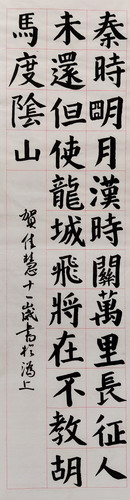 秦時明月漢時關萬里長征人
未還但使龍城飛將在不教胡
馬度陰山
賀佳慧十一歲書於滬上